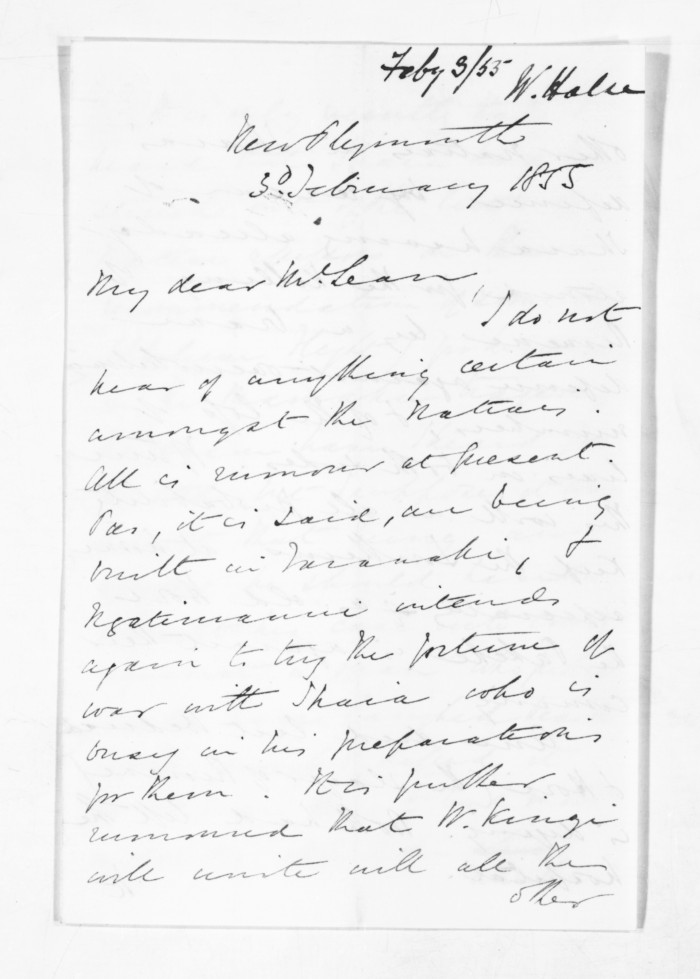 Feby 3/55 W. Halse
New Plymouth
3d. February 1855
My dear McLean,
I do not
hear of anything certain
amongst the Natives.
All is rumour at present.
Pas, it is said, are being
built in Taranaki, &
Ngatimaunu intends
again to try the fortune of
war with Ihaia who is
busy in his preparations
for them. It is further
rumoured that W. Kingi
will unite will all the
other